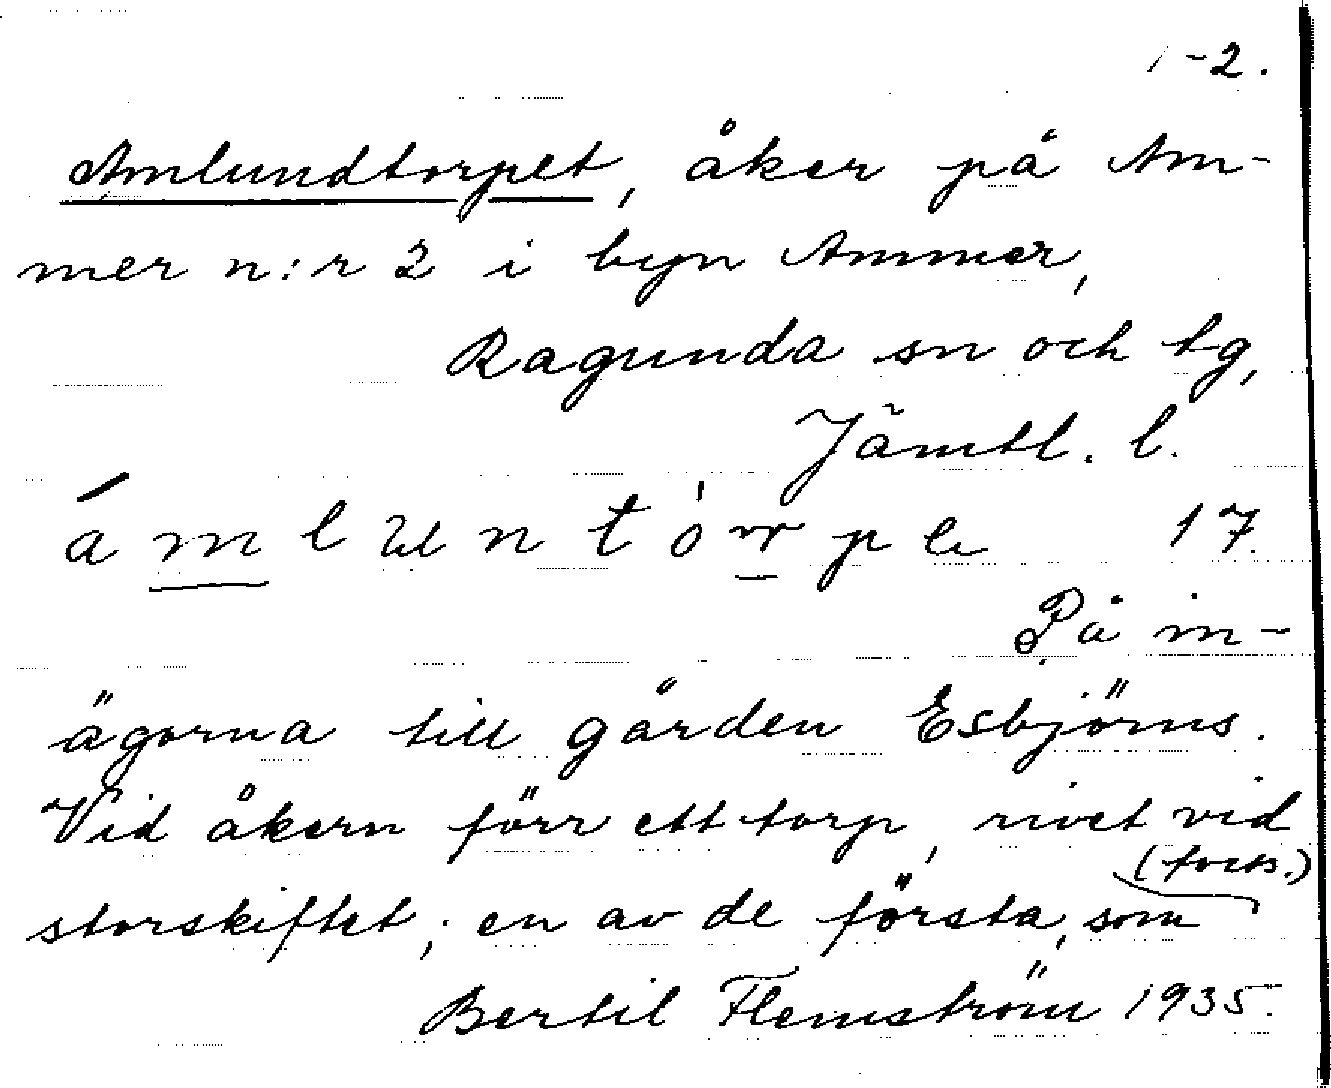 1-2.
Amlundtorpet, åker på Am-
mer n:r 2 i byn Ammer,
Ragunda sn och tg,
Jämtl. l.
17.
På in-
ägorna till gården Esbjörns.
Vid åkern förr ett torp, rivet vid
storskiftet; en av de första, som
(forts.)
Bertil Flemström 1935.